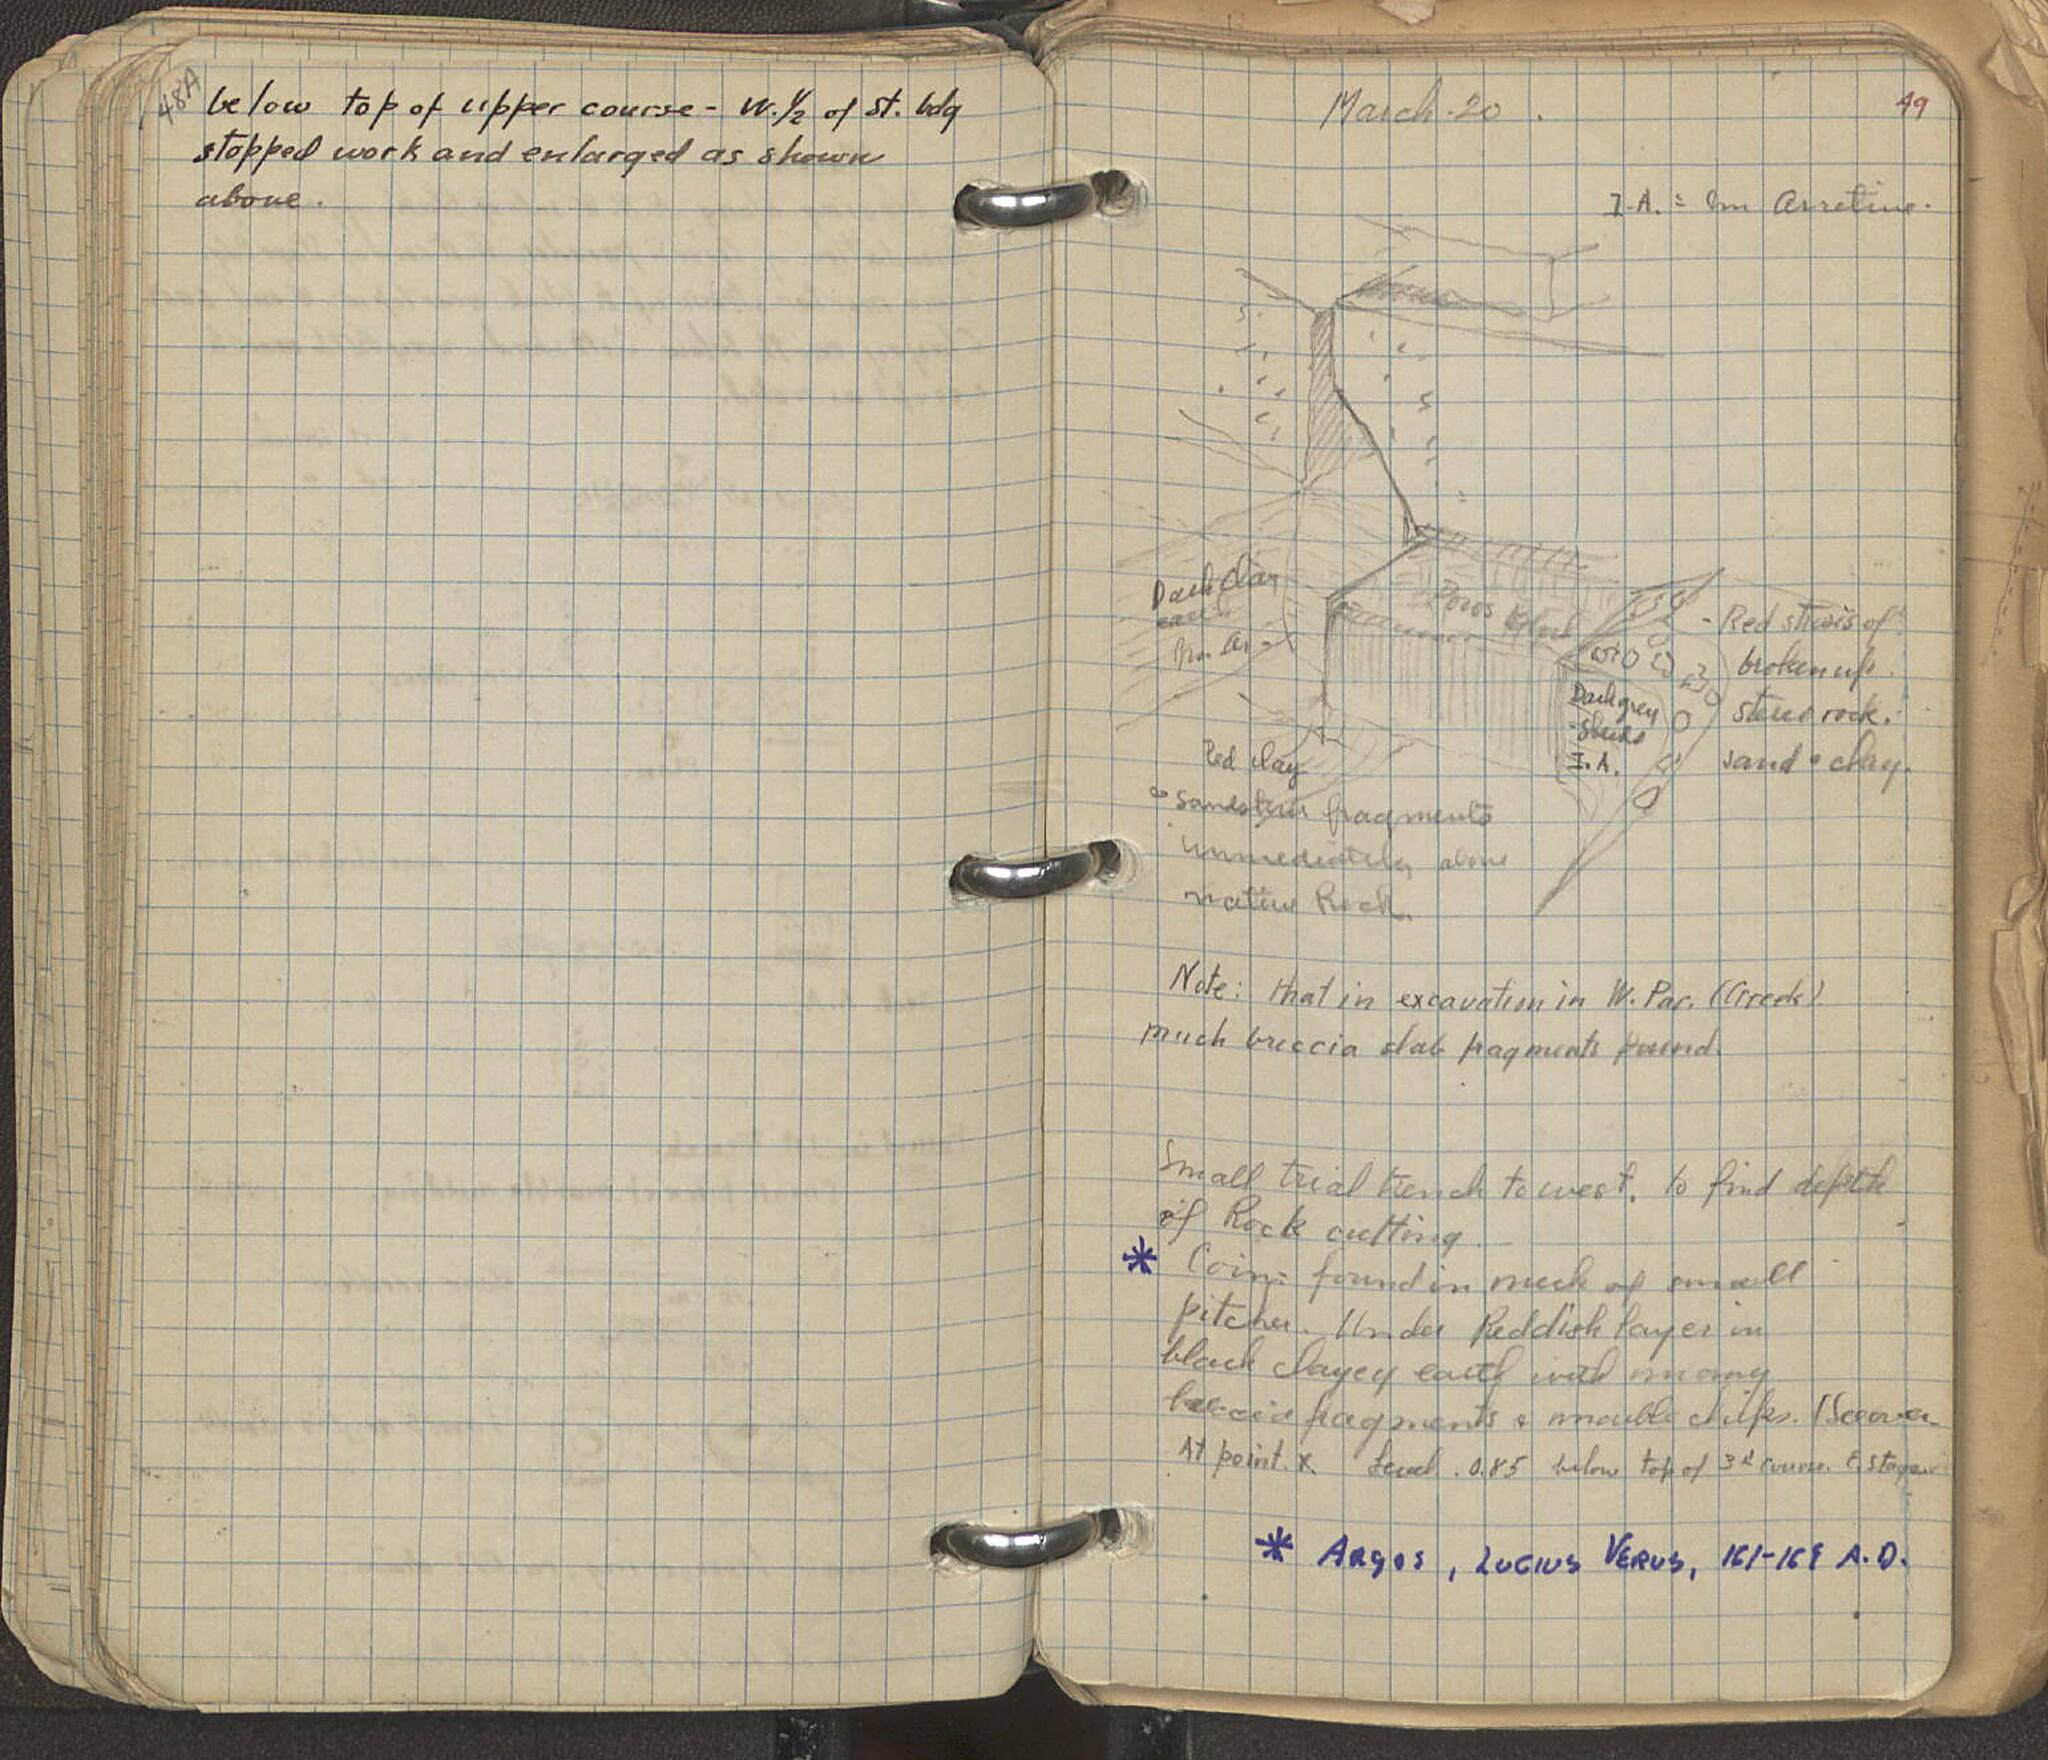 48A
below top of upper course - W. 1/2 of st. bdg
stopped work and enlarged as shown
above.
March. 20.
49
I.A. = Im Arretine.
Dark Clay
Im. Ar.
Poros
Red clay
sandstone fragments
immediately above
native Rock.
Dark grey
I.A.
- Red strosis of
broken up
stereo rock.
sand & clay.
Note: that in excavation in W. Par. (Greek)
much breccia slab fragments found.
Small trial trench to west, to find depth
of Rock cutting.
* Coin: found in neck of small
pitcher. Under Reddish layer in
black clayey earth with many
breccia fragments & marble chips. (See over
At point. x. Level. 0.85 below top of 3d course. E. stage
* Argos, Lucius Verus, 161-169 A.D.